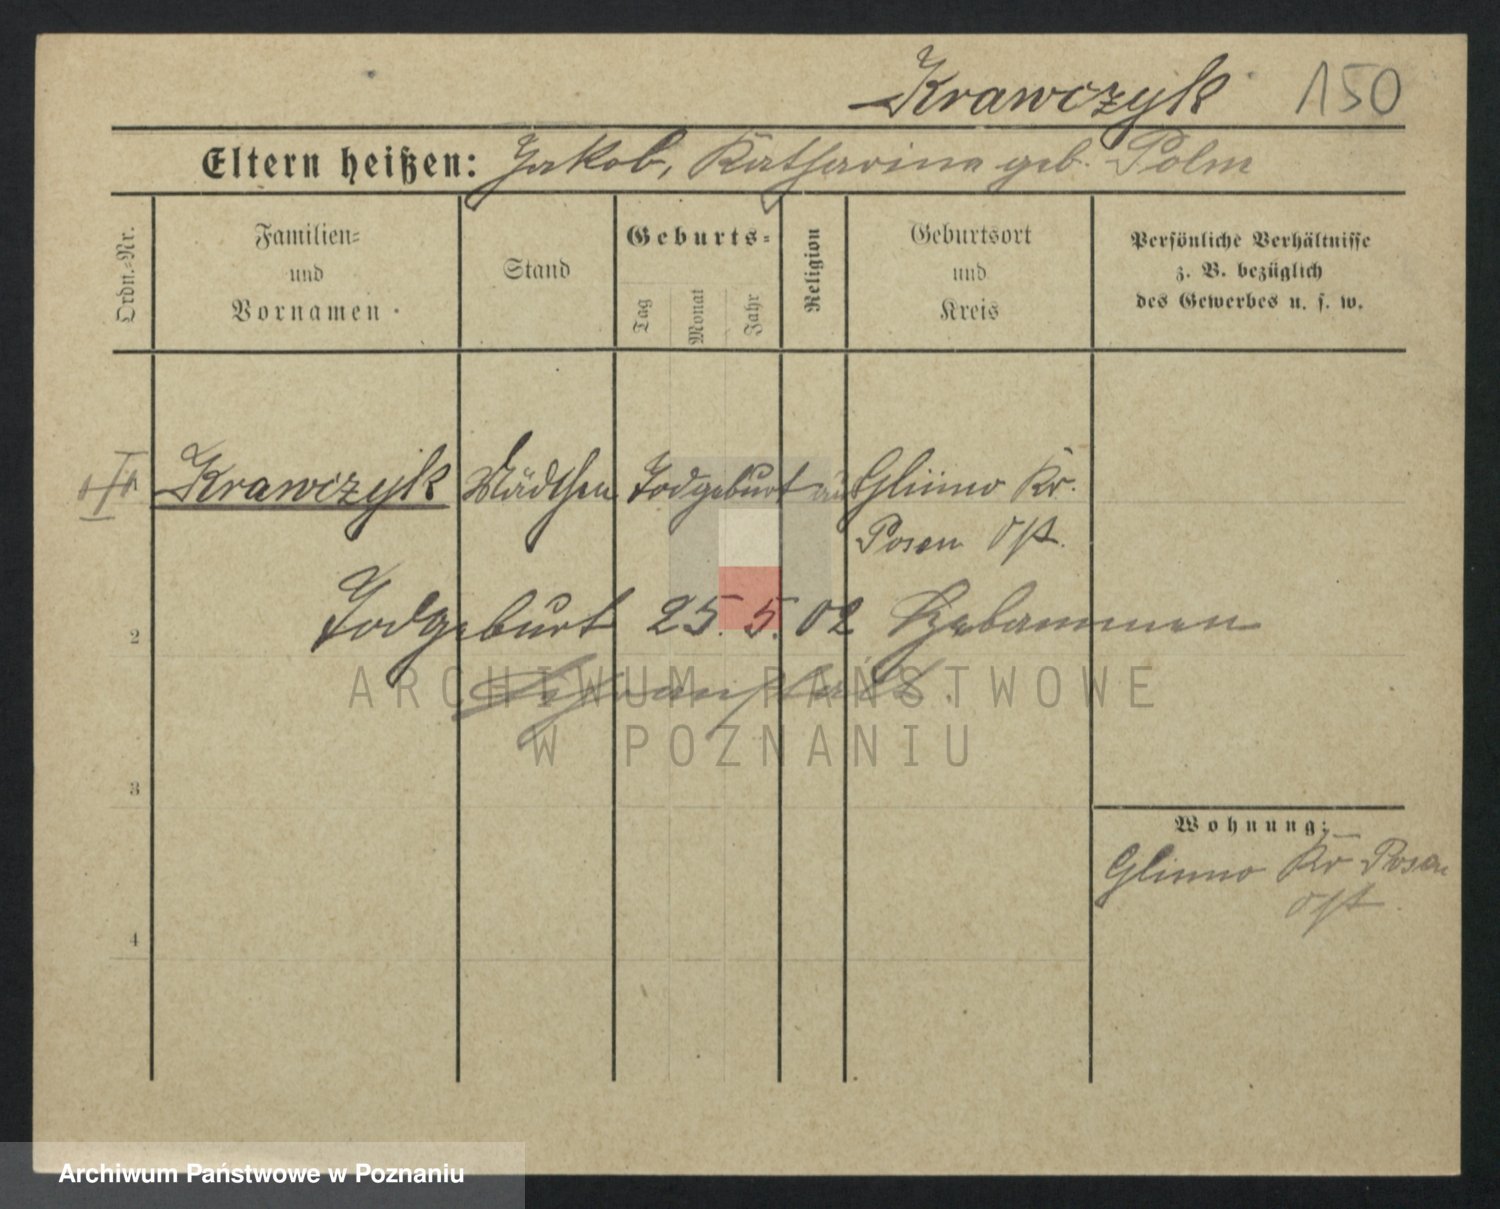 Krawczyk 150
Eltern heißen: Jakob, Katharina geb. Polm
Ordn.-Nr.
Familien- und Vornamen
Stand
Geburts-
Tag
Monat
Jahr
Religion
Geburtsort und Kreis
Persönliche Verhältnisse
z. B. bezüglich
des Gewerbes u. s. w.
Krawczyk Mädchen Todgeburt Glinno Kr.
Posen Ost.
2
Todgeburt 25. 5. 02 Hebammen
Lehranstalt.
3
Wohnung:
Glinno Kr Posen
Ost.
4
ARCHIWUM PAŃSTWOWE
W POZNANIU
Archiwum Państwowe w Poznaniu